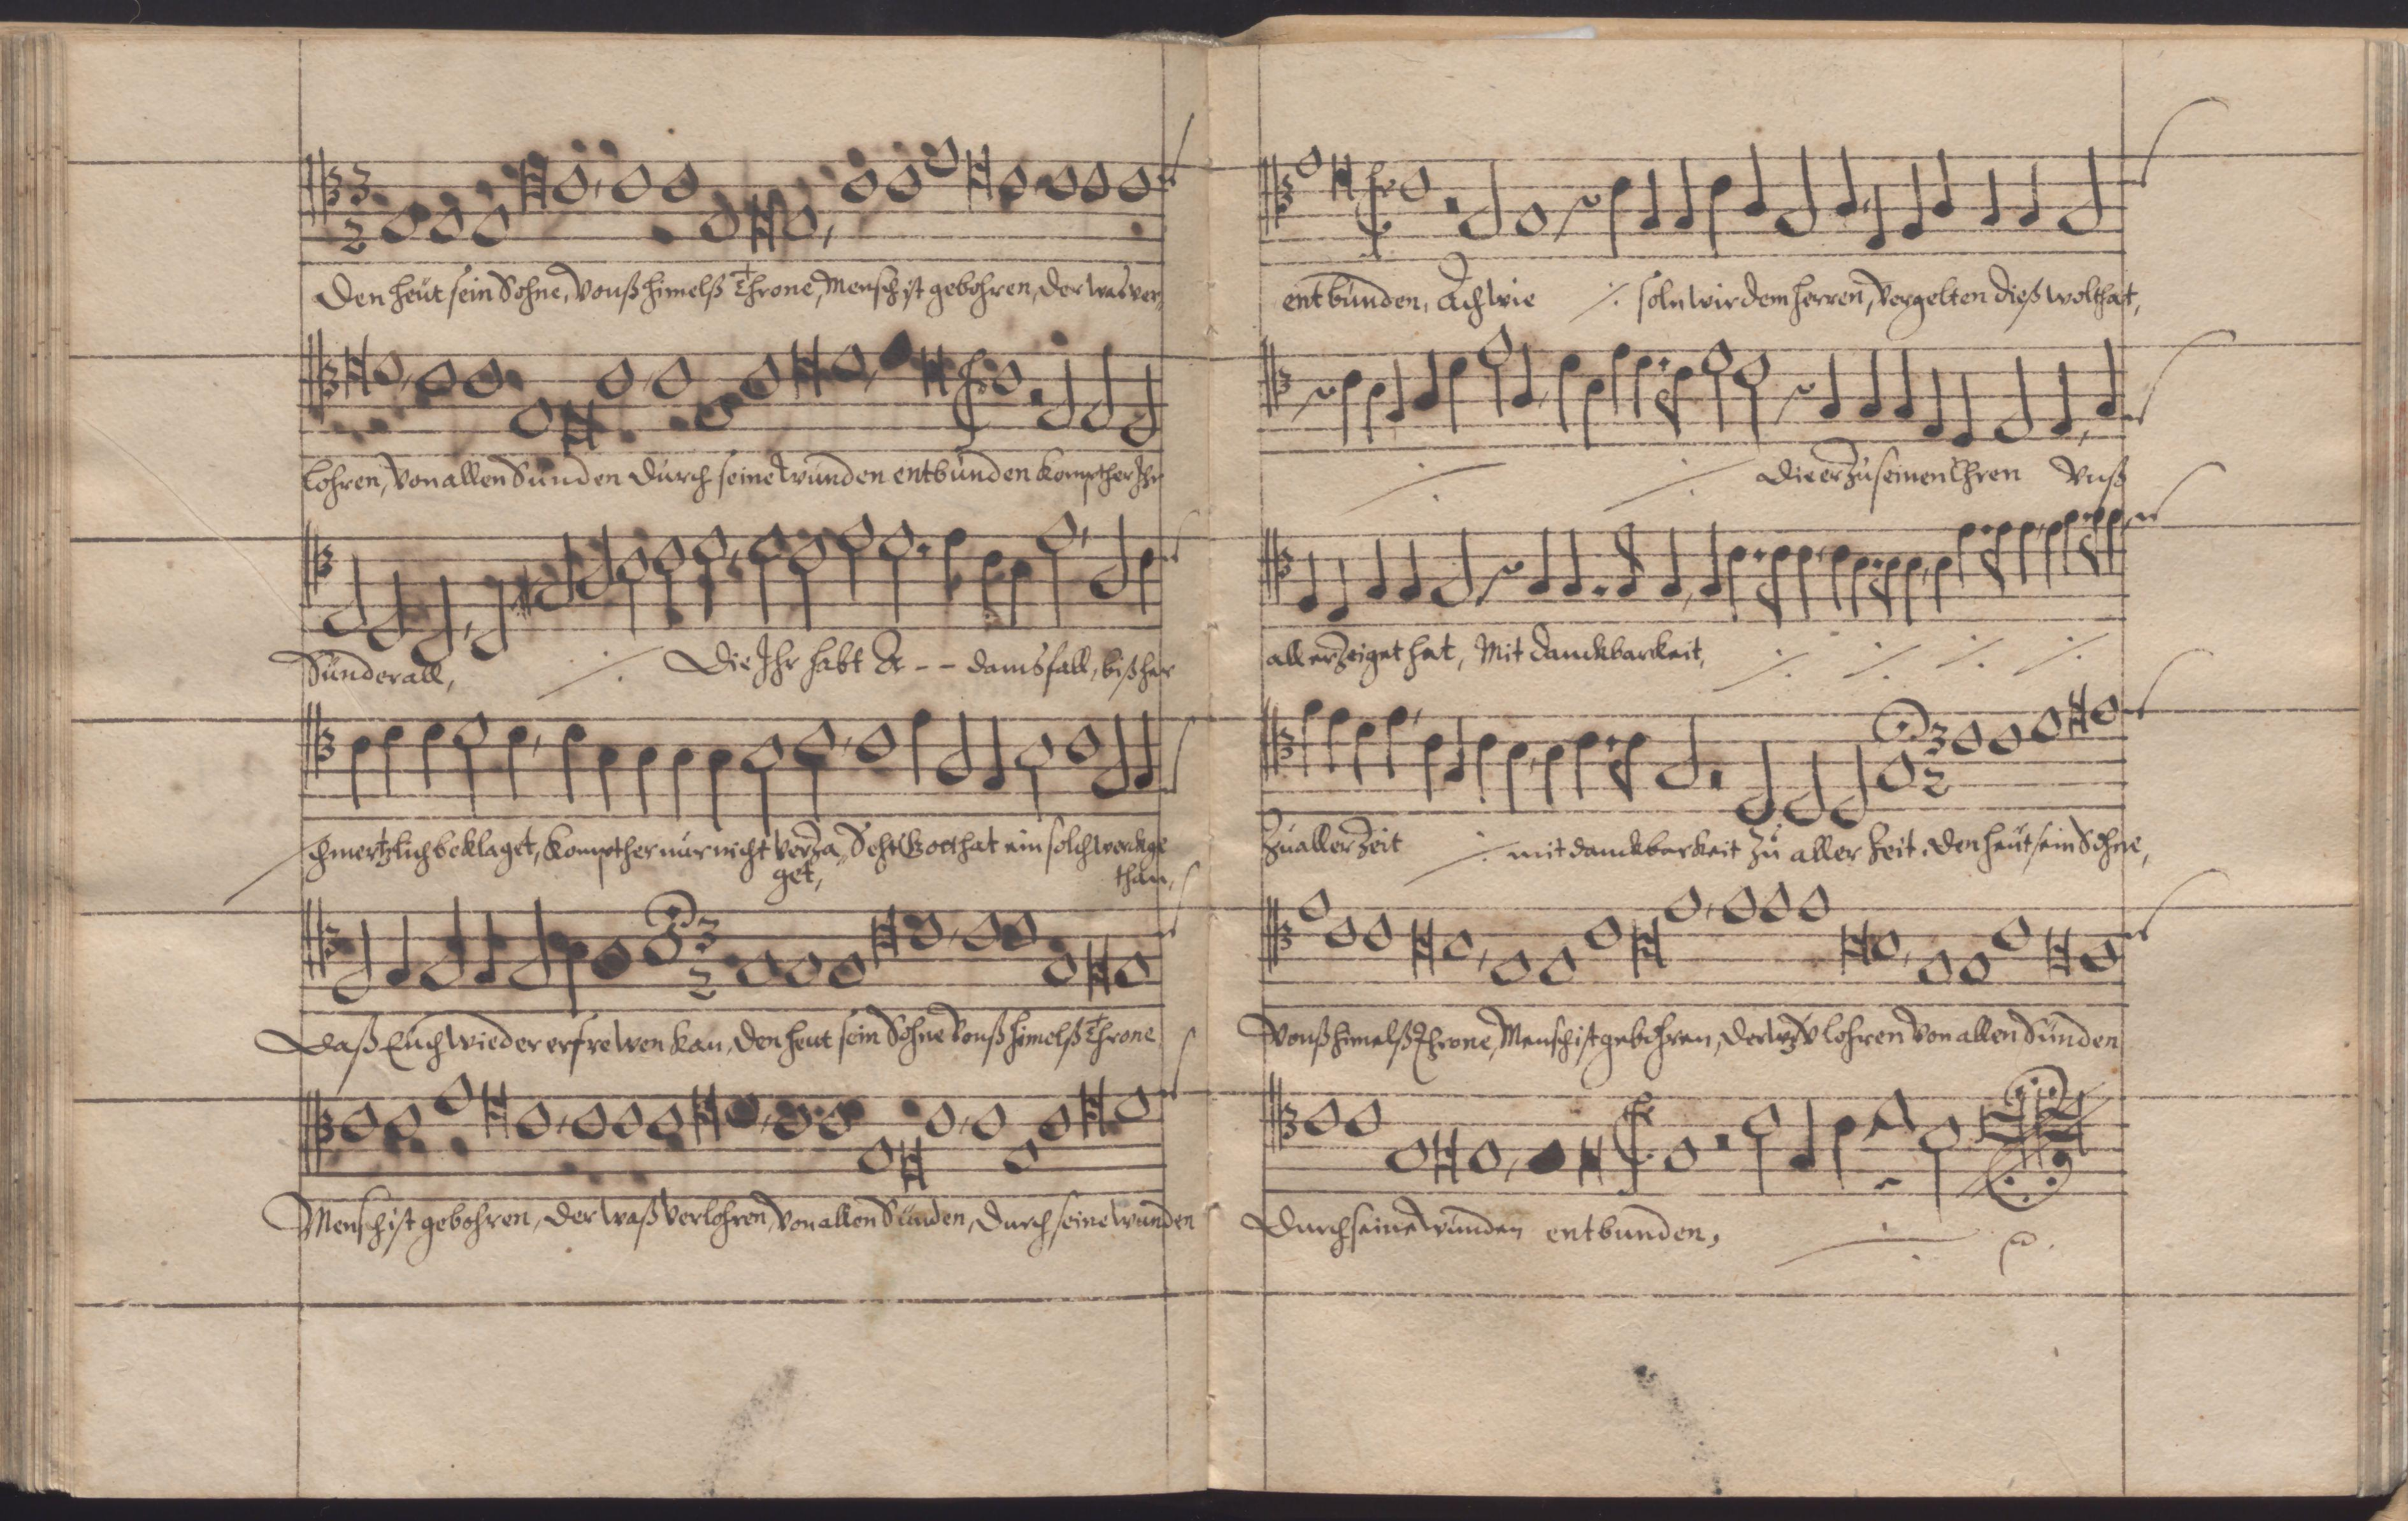 3
2
Den heut sein Sohne, Vonß himelß Throne, Mensch ist gebohren, der was ver-
lohren, Von allen Sünden durch seine Wunden entbunden kompt her Ihr
Sünder all, ⁒ Die Ihr habt A - - dams fall, biß her
schmertzlich beklaget, kompt her nur nicht verza„ Seht Gott hat ein solch werck ge
get, than,
3
2
Daß Euch wieder erfrewen kan, den heut sein Sohne Vonß himelß Throne
Mensch ist gebohren, der waß verlohren, Von allen Sünden, durch seine wunden
entbunden, Ach wie ⁒ soln wir dem herren, Vergelten dieß wolthat,
⁒ ⁒ die er zu seinen Ehren Vnß
all erzeiget hat, Mit danckbarkeit, ⁒ ⁒ ⁒ ⁒
3
2
Zu aller Zeit ⁒ mit danckbarkeit zu aller Zeit. den heut sein Sohne,
Vonß himelß Throne, Mensch ist gebohren, der verlohren Von allen Sünden
durch seine Wunden entbunden, ⁒